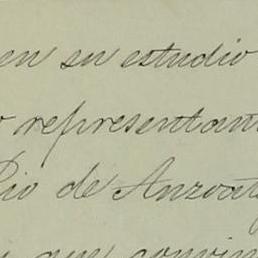 en su estudio
o representan
Rio de Anzoat
que convin